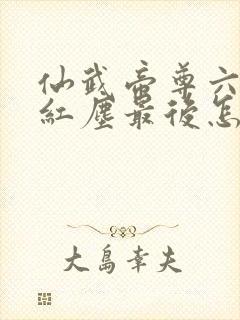 仙武帝尊六
紅塵最後怎
大島幸夫